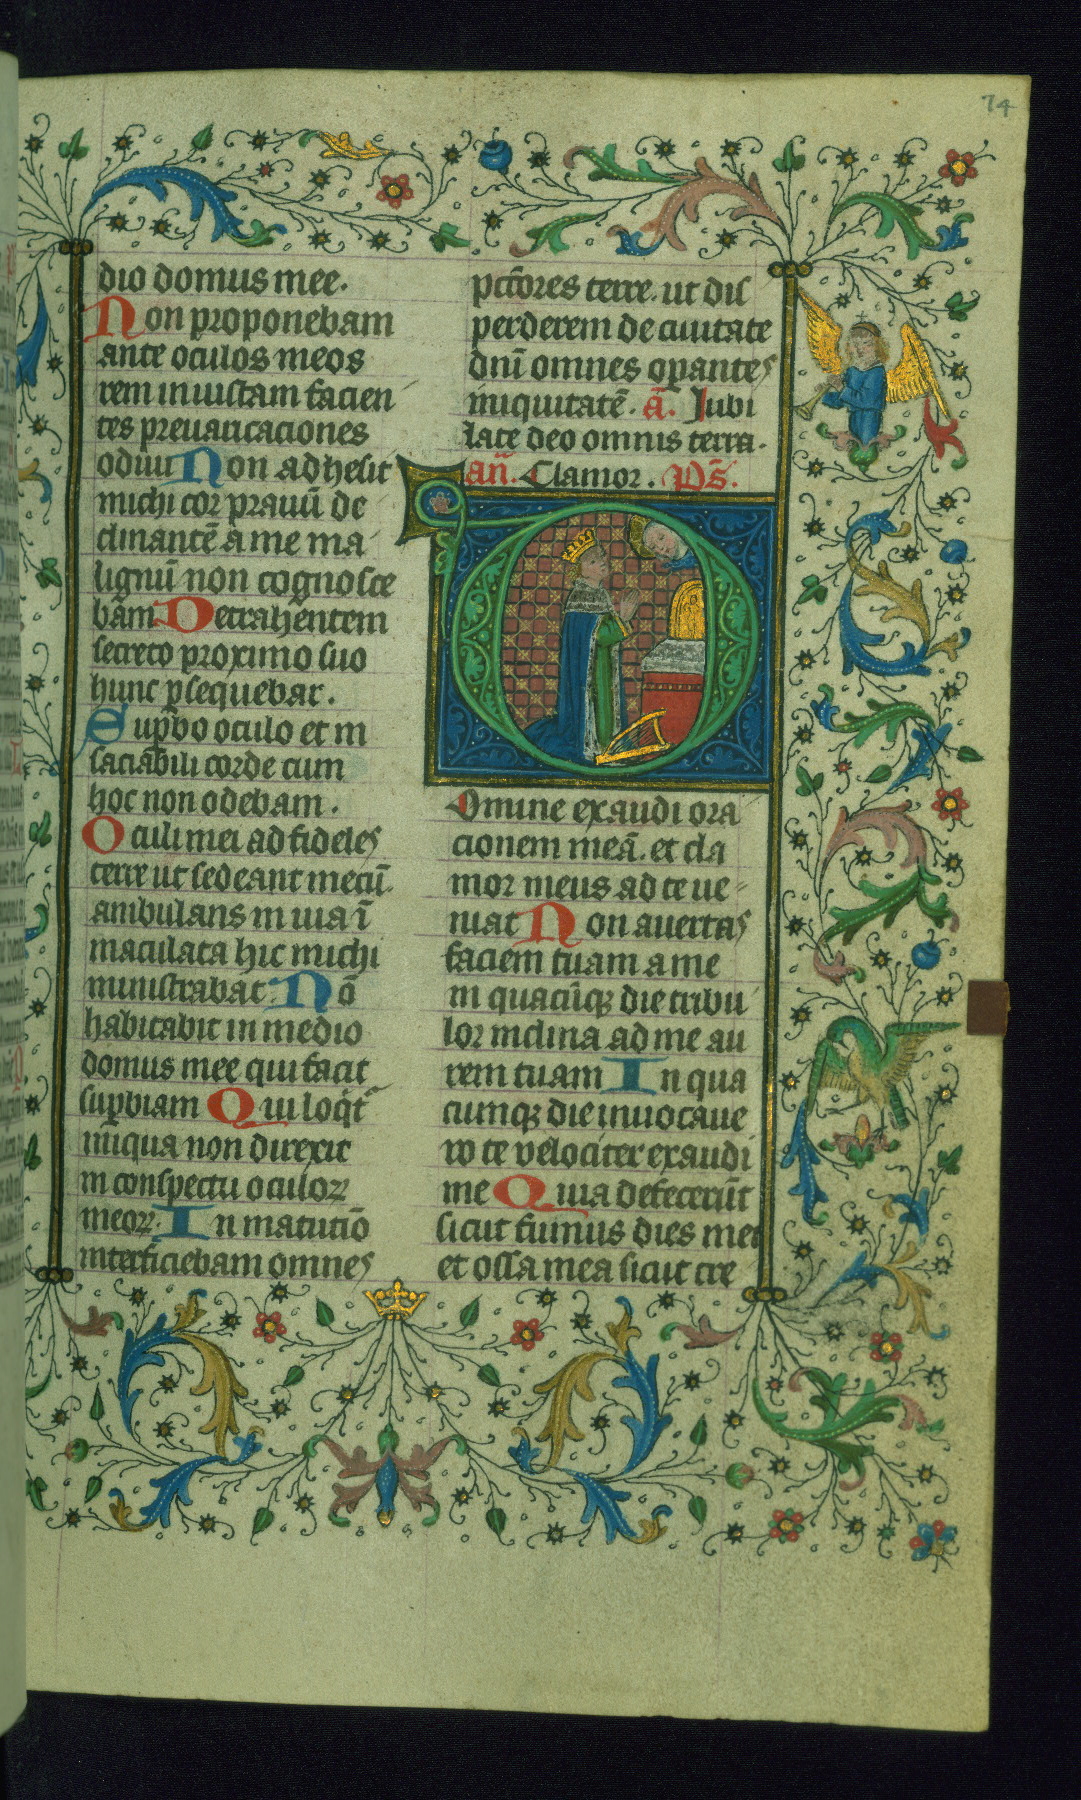 74
dio domus mee.
Non proponebam
ante oculos meos
rem iniustam facien
tes preuaricaciones
odiui Non adhesit
michi cor prauū de
clinantē a me ma
lignū non cognosce
bam Detrahentem
secreto proximo suo
hunc psequebar.
Supbo oculo et in
saciabili corde cum
hoc non edebam.
Oculi mei ad fideles
terre ut sedeant mecū.
ambulans in uia ī
maculata hic michi
ministrabat. Nō
habitabit in medio
domus mee qui facit
supbiam Qui loqt
iniqua non direxit
in conspectu oculoꝝ
meoꝝ. In matutīo
interficiebam omnes
pctōres terre. ut dis
perderem de ciuitate
dnī omnes opantes
iniquitatē. ā. Iubi
late deo omnis terra.
añ. Clamor. Ps̄.
Domine exaudi ora
cionem meā. et cla
mor meus ad te ue-
niat Non auertas
faciem tuam a me
in quacūqꝫ die tribu
lor inclina ad me au
rem tuam In qua
cumqꝫ die inuocaue
ro te velociter exaudi
me Quia defecerūt
sicut fumus dies mei
et ossa mea sicut cre